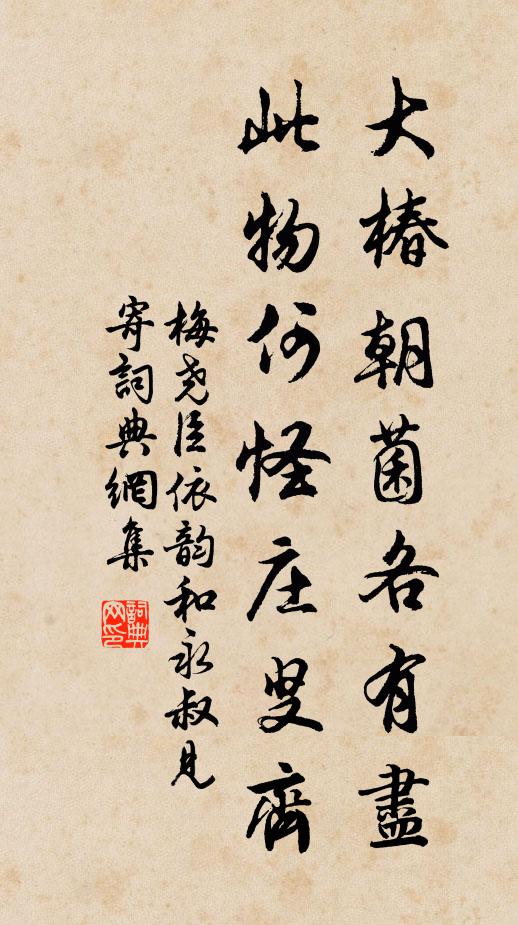 大椿朝菌各有盡
此物何怪庄叟齊
梅尧臣依韵和永叔見
寄詞典網集
詞典网印